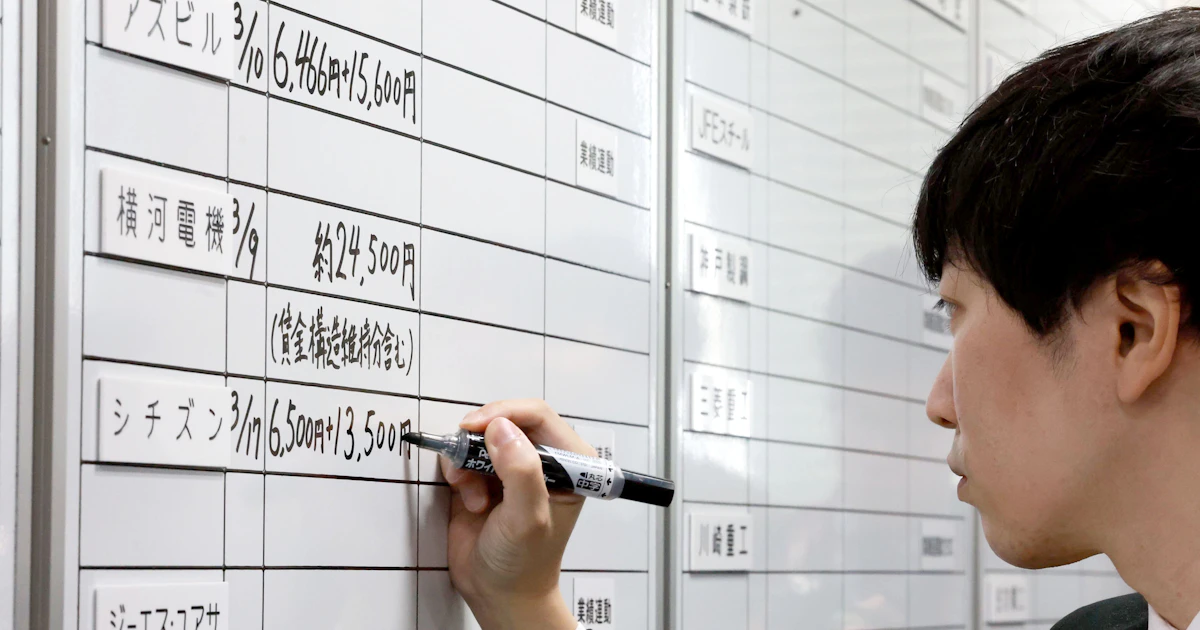 アズビル 3/10 6,466円+15,600円
業績連動
業績連動
横河電機 3/9 約24,500円
(賃金構造維持分含む)
シチズン 3/17 6,500円+13,500円
ジーエス・ユアサ
業績連動
JFEスチール
神戸製鋼
三菱重工
川崎重工